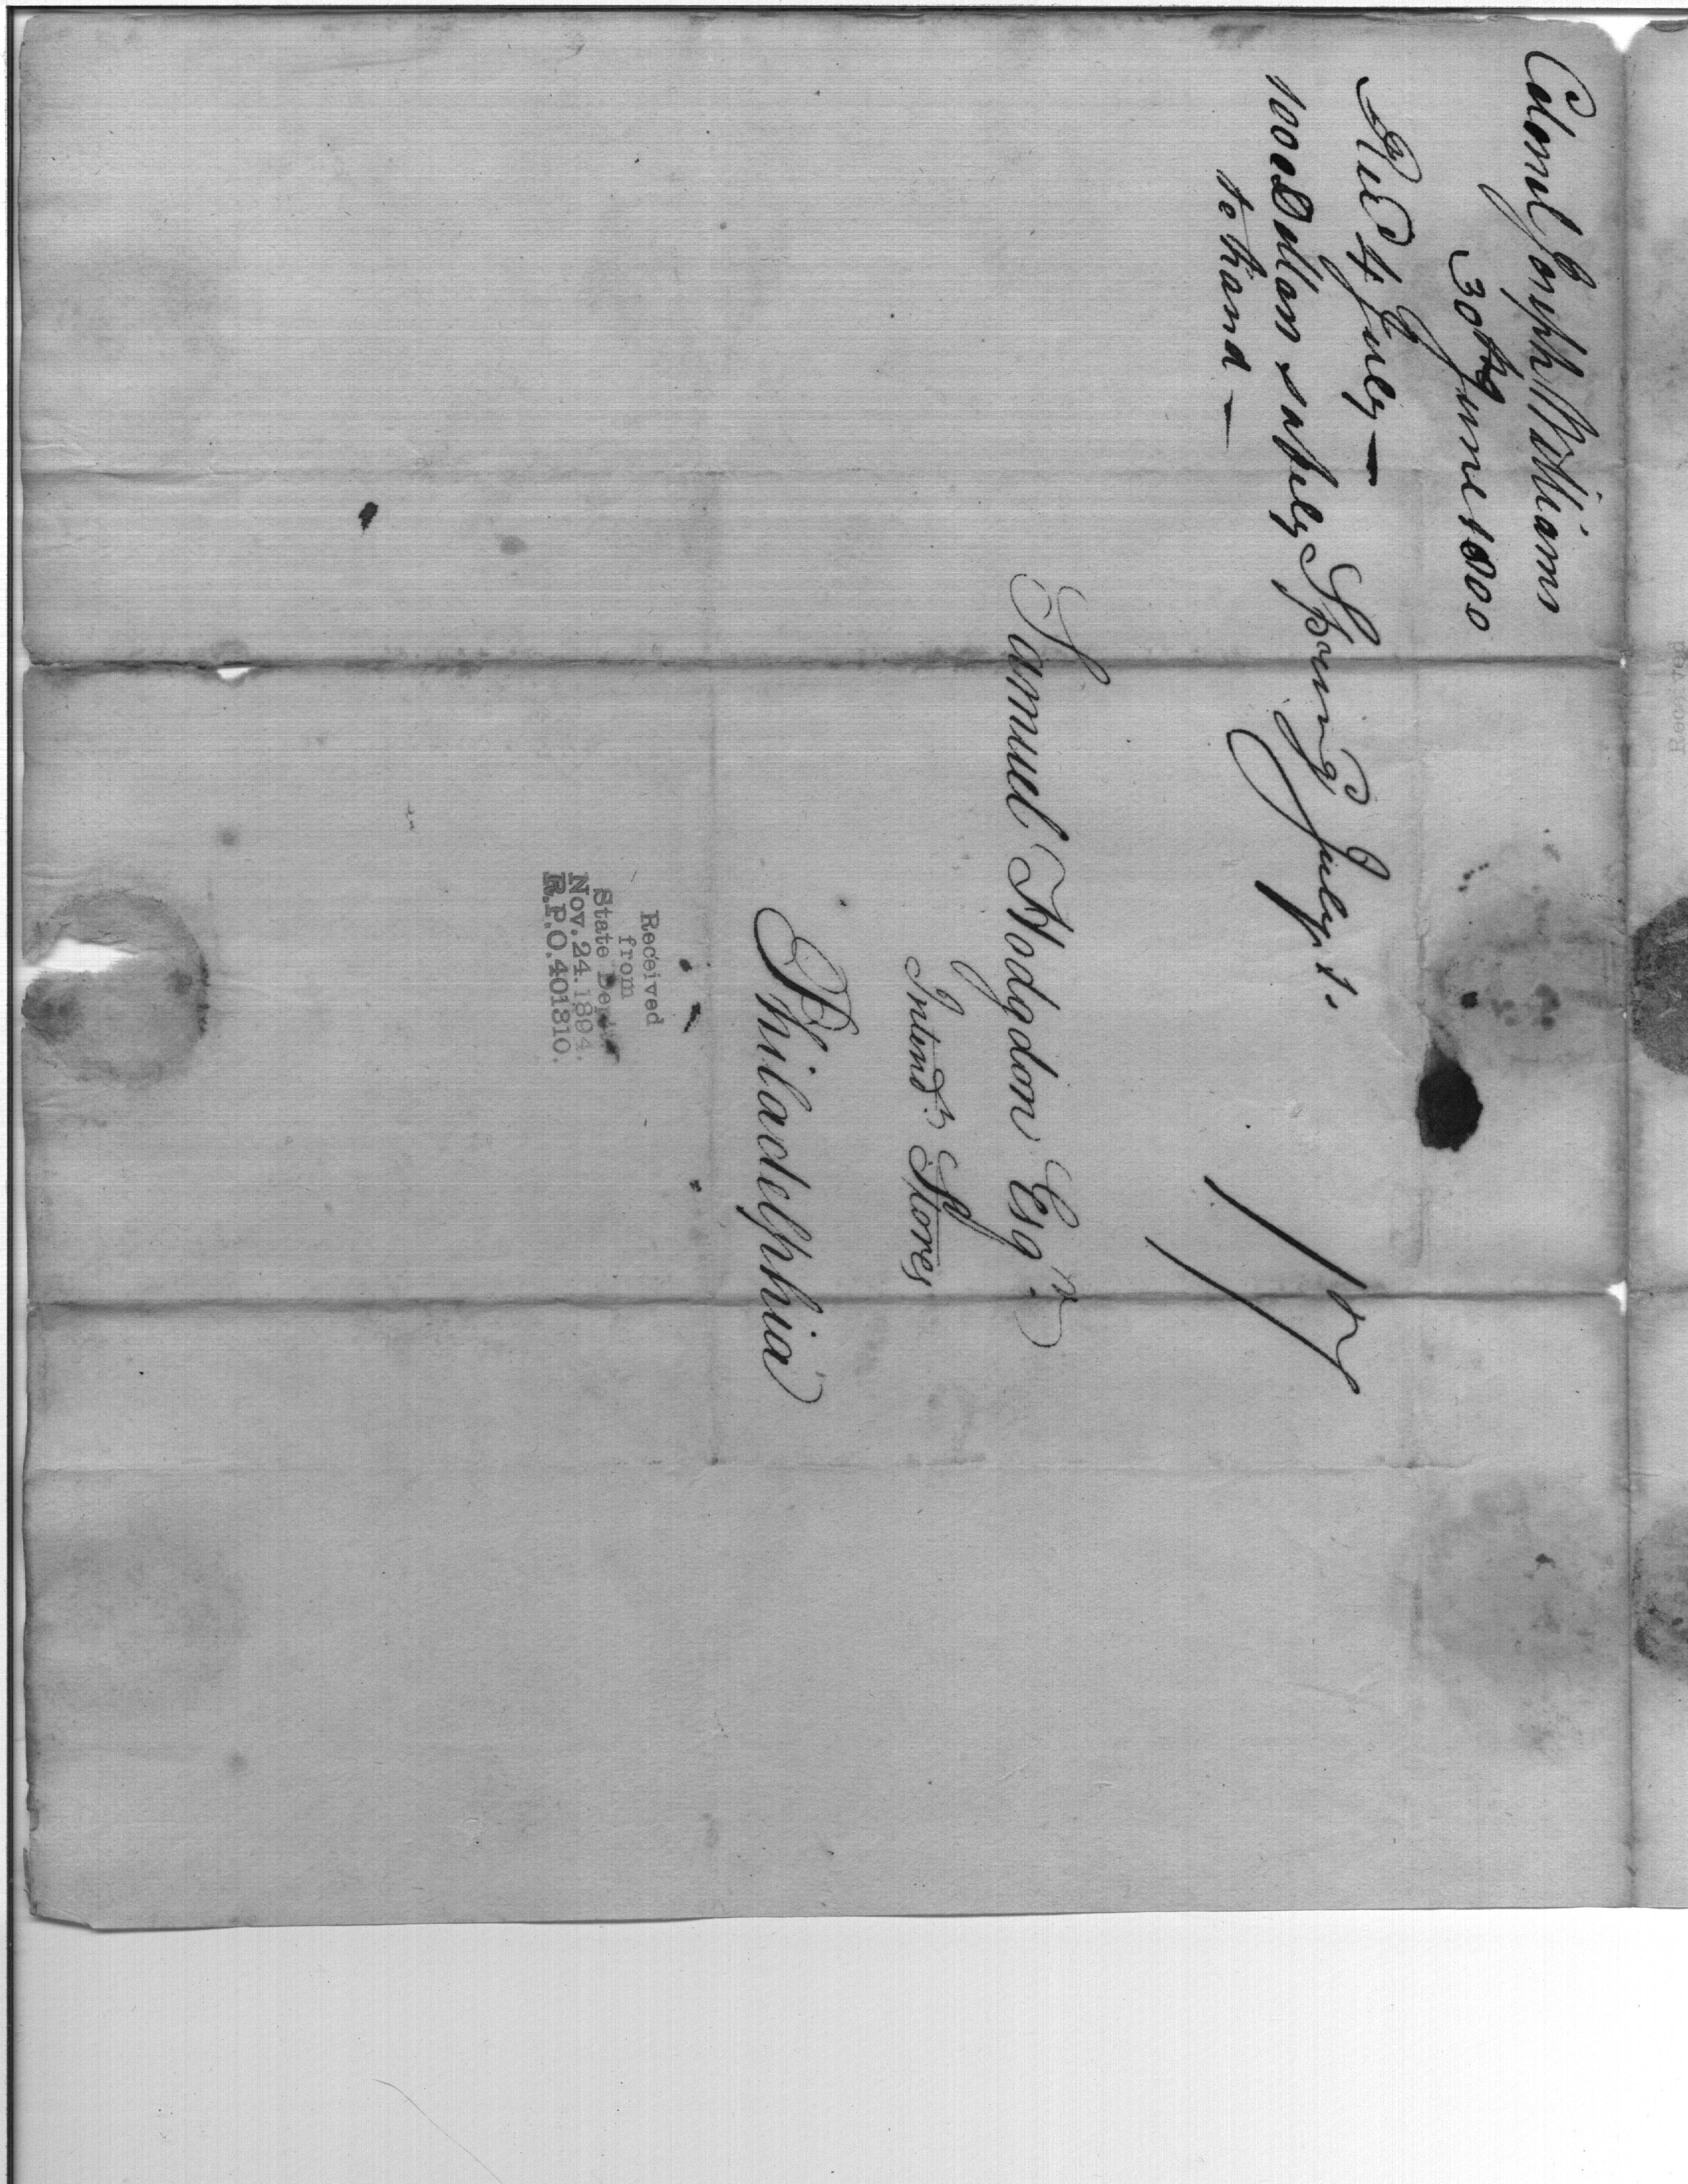 Colonel Joseph Williams
30th June 1800
Rec'd 4 July —
1000 Dollars safely
to hand —
July 1.
17
Samuel Hodgdon Esqr.
Intendt. M Stores
Philadelphia
Received
from
State Dept.
Nov. 24. 1894.
R.P.O. 401310.